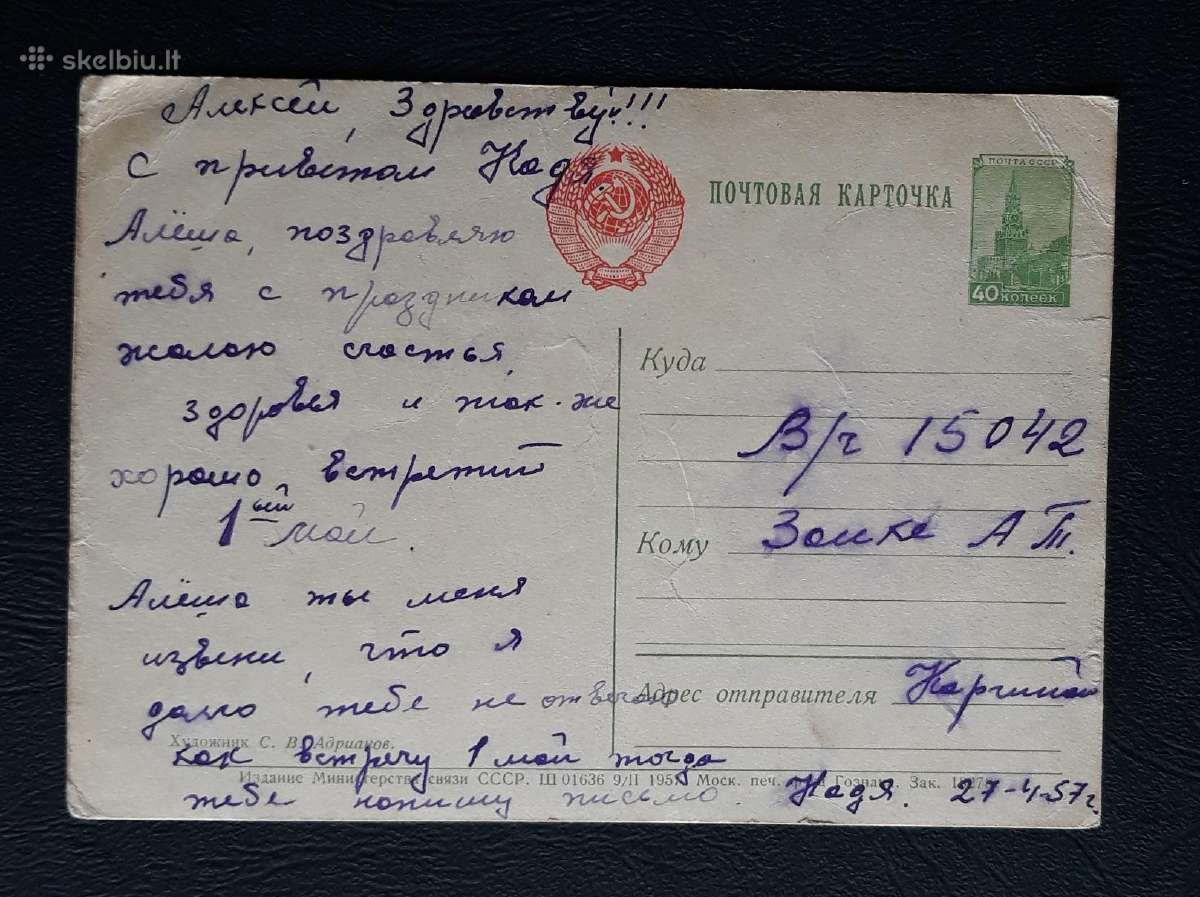 skelbiu.lt
Алексей, Здравствуй!!!
с приветом Надя.
Алёша, поздравляю
тебя с праздником
желаю счастья,
здоровья и так-же
хорошо встретить
1ый май.
Алёша ты меня
извени, что я
долго тебе не отвечаю
как встречу 1 май тогда
тебе напишу письмо. Надя. 27-4-57г.
ПОЧТОВАЯ КАРТОЧКА
ПОЧТА СССР
40 КОПЕЕК
Куда
В/ч 15042
Кому Заике А Т.
Адрес отправителя
Художник С. В. Адрианов.
Издание Министерства связи СССР. Ш 01636 9/II Моск. печ. Гознака. Зак.